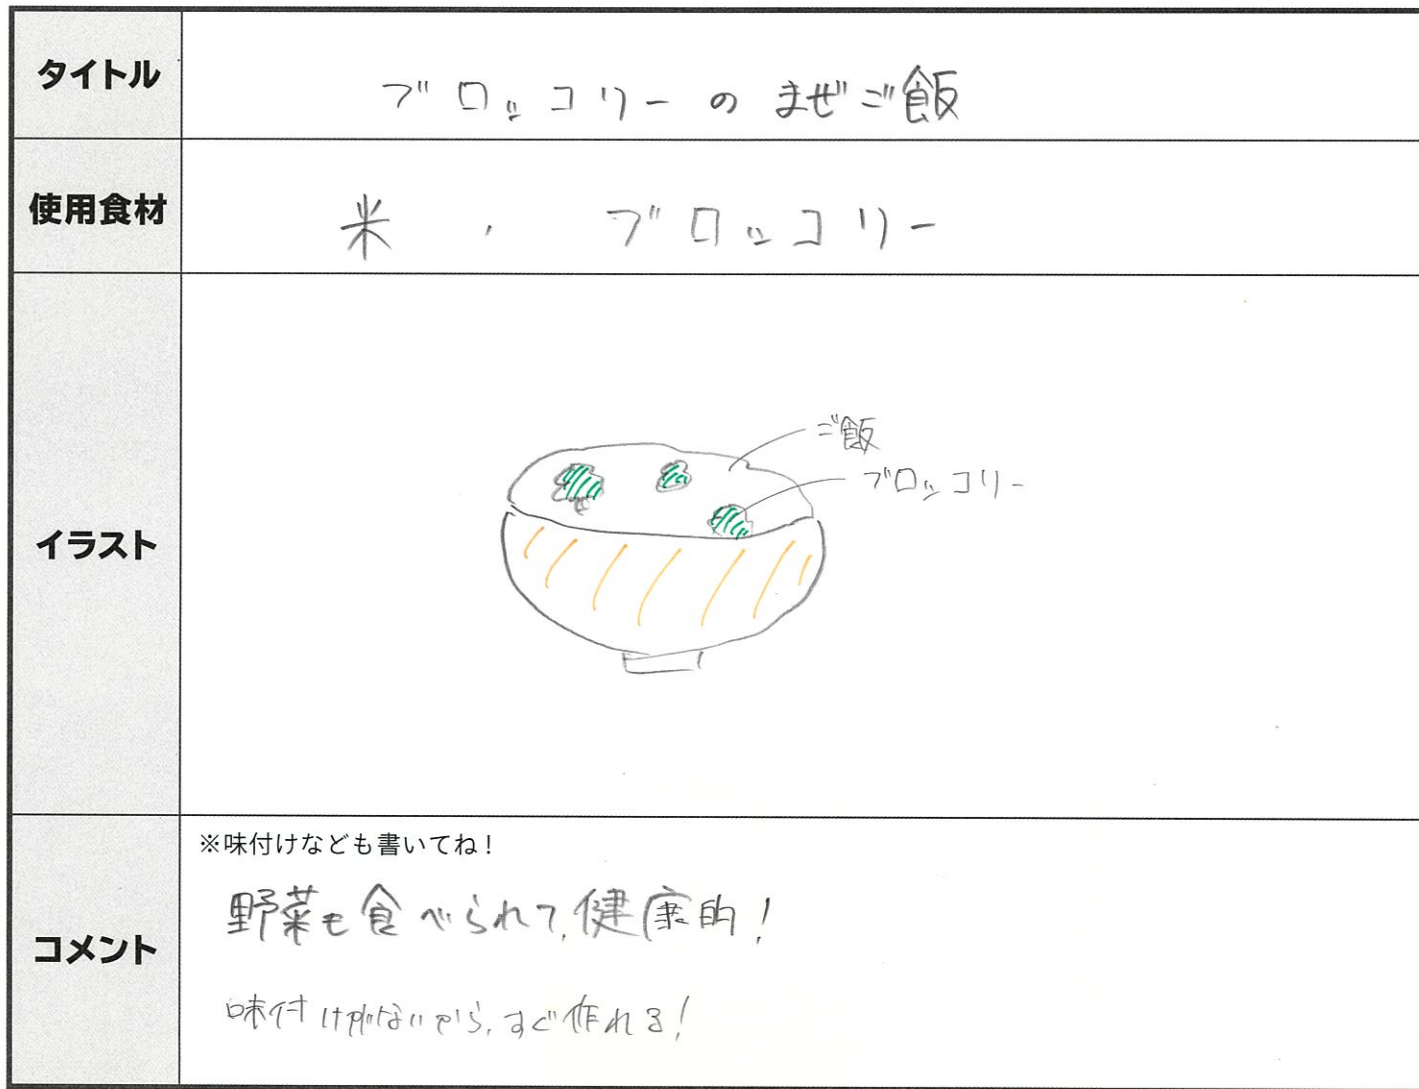 タイトル
ブロッコリーのまぜご飯
使用食材
米 、 ブロッコリー
イラスト
ご飯
ブロッコリー
コメント
※味付けなども書いてね!
野菜も食べられて、健康的!
味付けがないから、すぐ作れる!